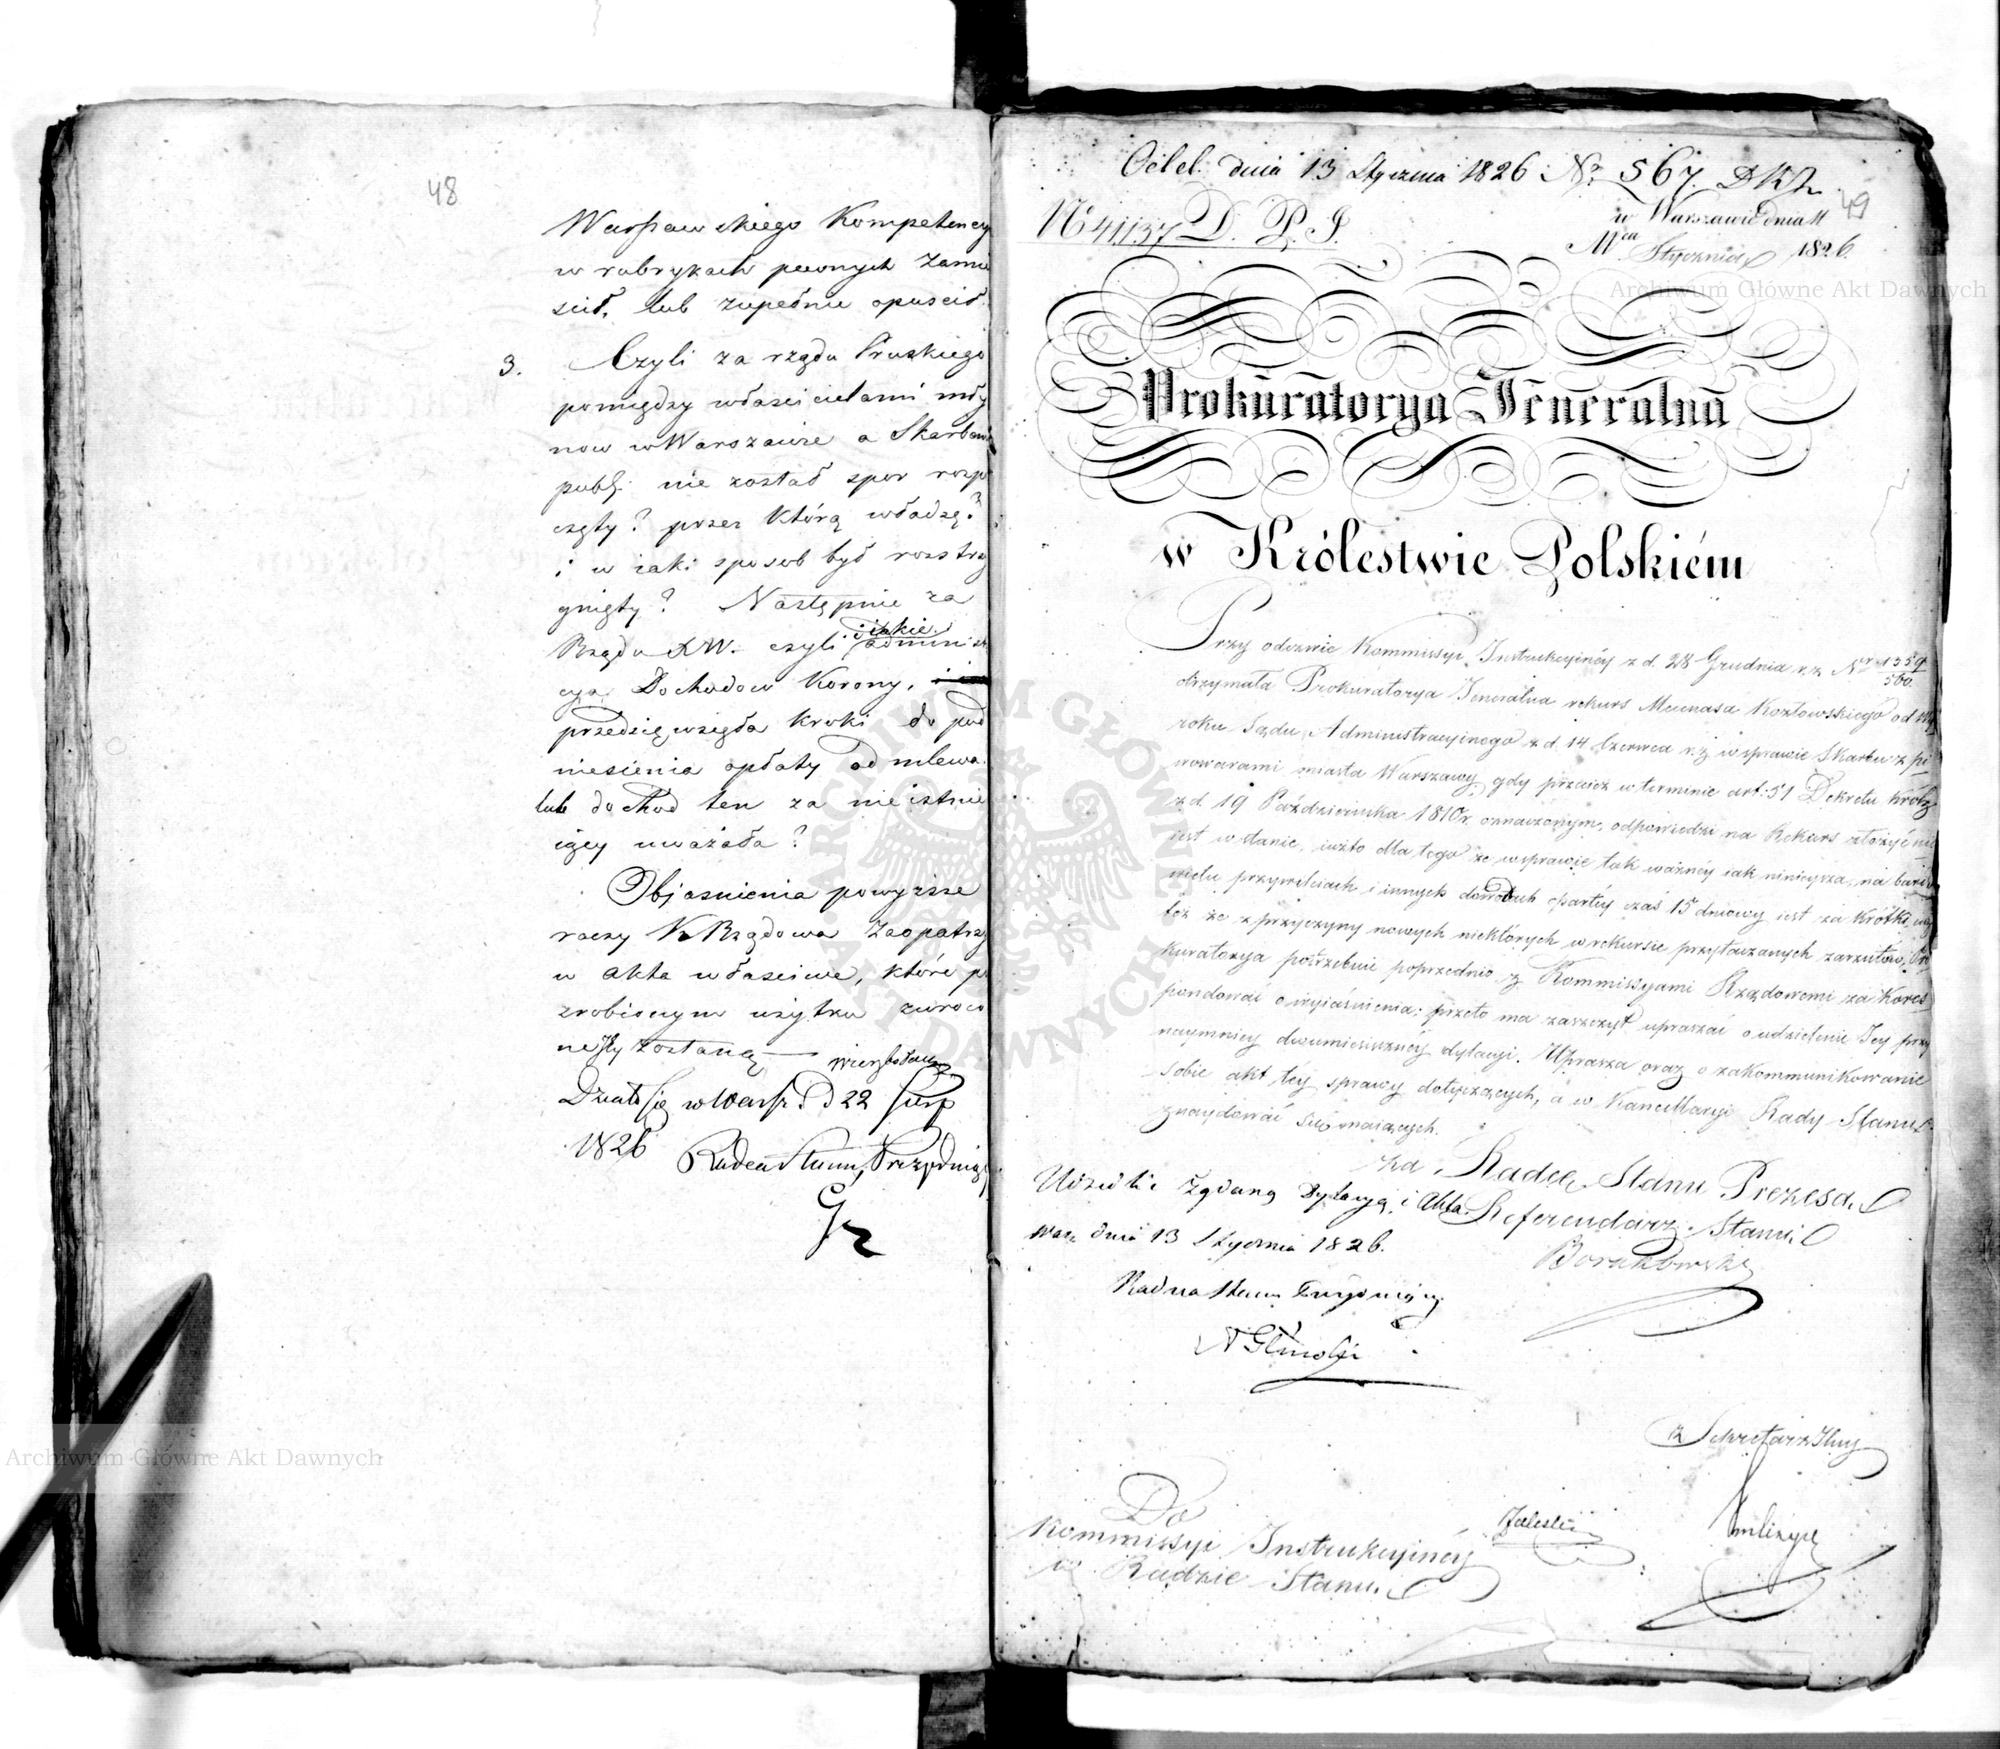 48
Warszawskiego Kompetency
w rubrykach pewnych zamie
scił, lub zupełnie opuscił.
3. Czyli za rządu Pruskiego
pomiędzy właścicielami mły
now w Warszawie a Skarbem
publ: nie został spor rozpo
częty? przez którą władzę?
i w iaki sposob był rozstrzy
gnięty? Następnie za
Rządu XW. czyli i iakie
administra
cya Dochodow Korony,
przedsięwzięła kroki do pod
niesienia opłaty od mlewa
lub dochod ten za nieistnie
iący uważała?
Obiasnienia powyższe
raczy K Rządowa zaopatrzy
w akta właściwe, które po
zrobionym użytku zwroco
nemi zostaną
Działo się w Warsz. d 22 Sierp
1826
Radca Stanu Prezyduiący
Gz
Odeb. dnia 13 Stycznia 1826 Nr. 567.
49
No 41137 D. P. J.
w Warszawie dnia 11
Mca Stycznia 1826.
Prokuratorya Jeneralna
w Królestwie Polskiém
Przy odezwie Kommissyi Instrukcyinéy z d. 28 Grudnia r.z. Nr 1359/560.
otrzymała Prokuratorya Jeneralna rekurs Mecenasa Kozłowskiego od Wy
roku Sądu Administracyinego z d. 14 Czerwca r.z. w sprawie Skarbu z pi
wowarami miasta Warszawy, gdy przecież w terminie art: 51 Dekretu Król:
z d. 19 Października 1810 r. oznaczonym, odpowiedzi na Rekurs złożyć nie
iest w stanie, iużto dla tego że w sprawie tak ważnéy iak ninieysza, na bardzo
wielu przywileiach i innych dowodach opartéy czas 15 dniowy iest za krótki, iuż
też że z przyczyny nowych niektórych w rekursie przytaczanych zarzutów, Pro
kuratorya potrzebuie poprzednio z Kommissyami Rządowemi za Kores
pondować o wyiaśnienia; przeto ma zaszczyt upraszać o udzielenie Jey przy
naymniey dwumiesięczney dylacyi. Uprasza oraz o zakommunikowanie
sobie akt tey sprawy dotyczących, a w Kancellaryi Rady Stanu
znaydować się maiących.
za Radcę Stanu Prezesa.
Referendarz Stanu
Udzielić żądaną dylacyą i Akta.
Warsz dnia 13 Stycznia 1826.
Radca Stanu Prezyduiący
Do
Kommissyi Instrukcyinéy
w Radzie Stanu.
Archiwum Główne Akt Dawnych
Archiwum Główne Akt Dawnych
ARCHIWUM GŁÓWNE AKT DAWNYCH